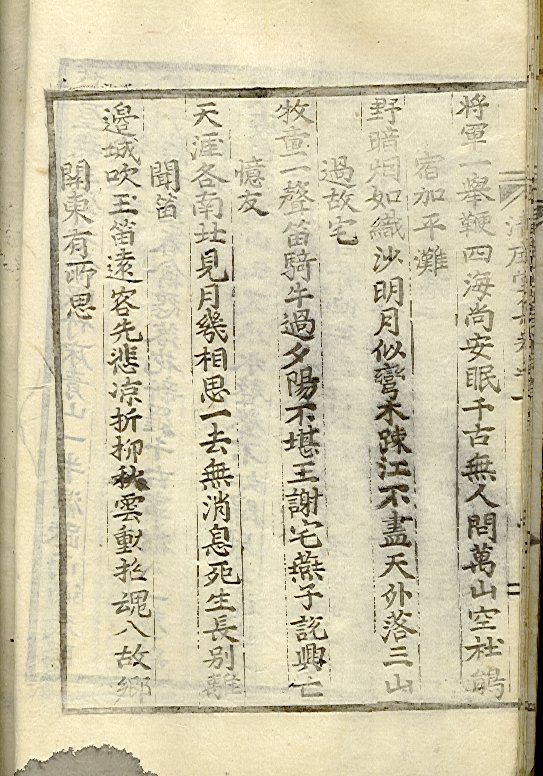 將軍一舉鞭四海尚安眠千古無人問萬山空杜鵑
宿加平灘
野暗烟如織沙明月似彎木踈江不盡天外落三山
過故宅
牧童一聲笛騎牛過夕陽不堪王謝宅燕子說興亡
憶友
天涯各南北見月幾相思一去無消息死生長别離
聞笛
邊城吹玉笛遠客先悲凉折柳秋雲動招魂入故鄉
關東有所思